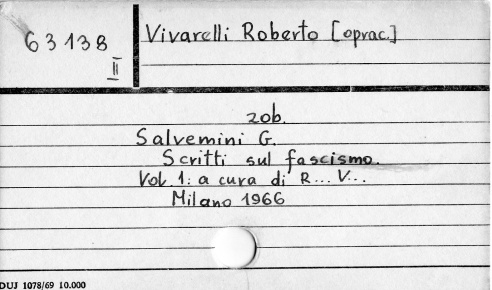 63138
II
Vivarelli Roberto [oprac.]
zob.
Salvemini G.
Scritti sul fascismo.
Vol. 1: a cura di R... V...
Milano 1966
DUJ 1078/69 10.000